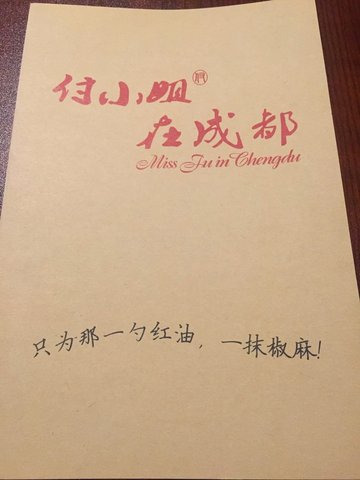 付小姐
在成都
Miss Fu in Chengdu
只为那一勺红油，一抹椒麻！